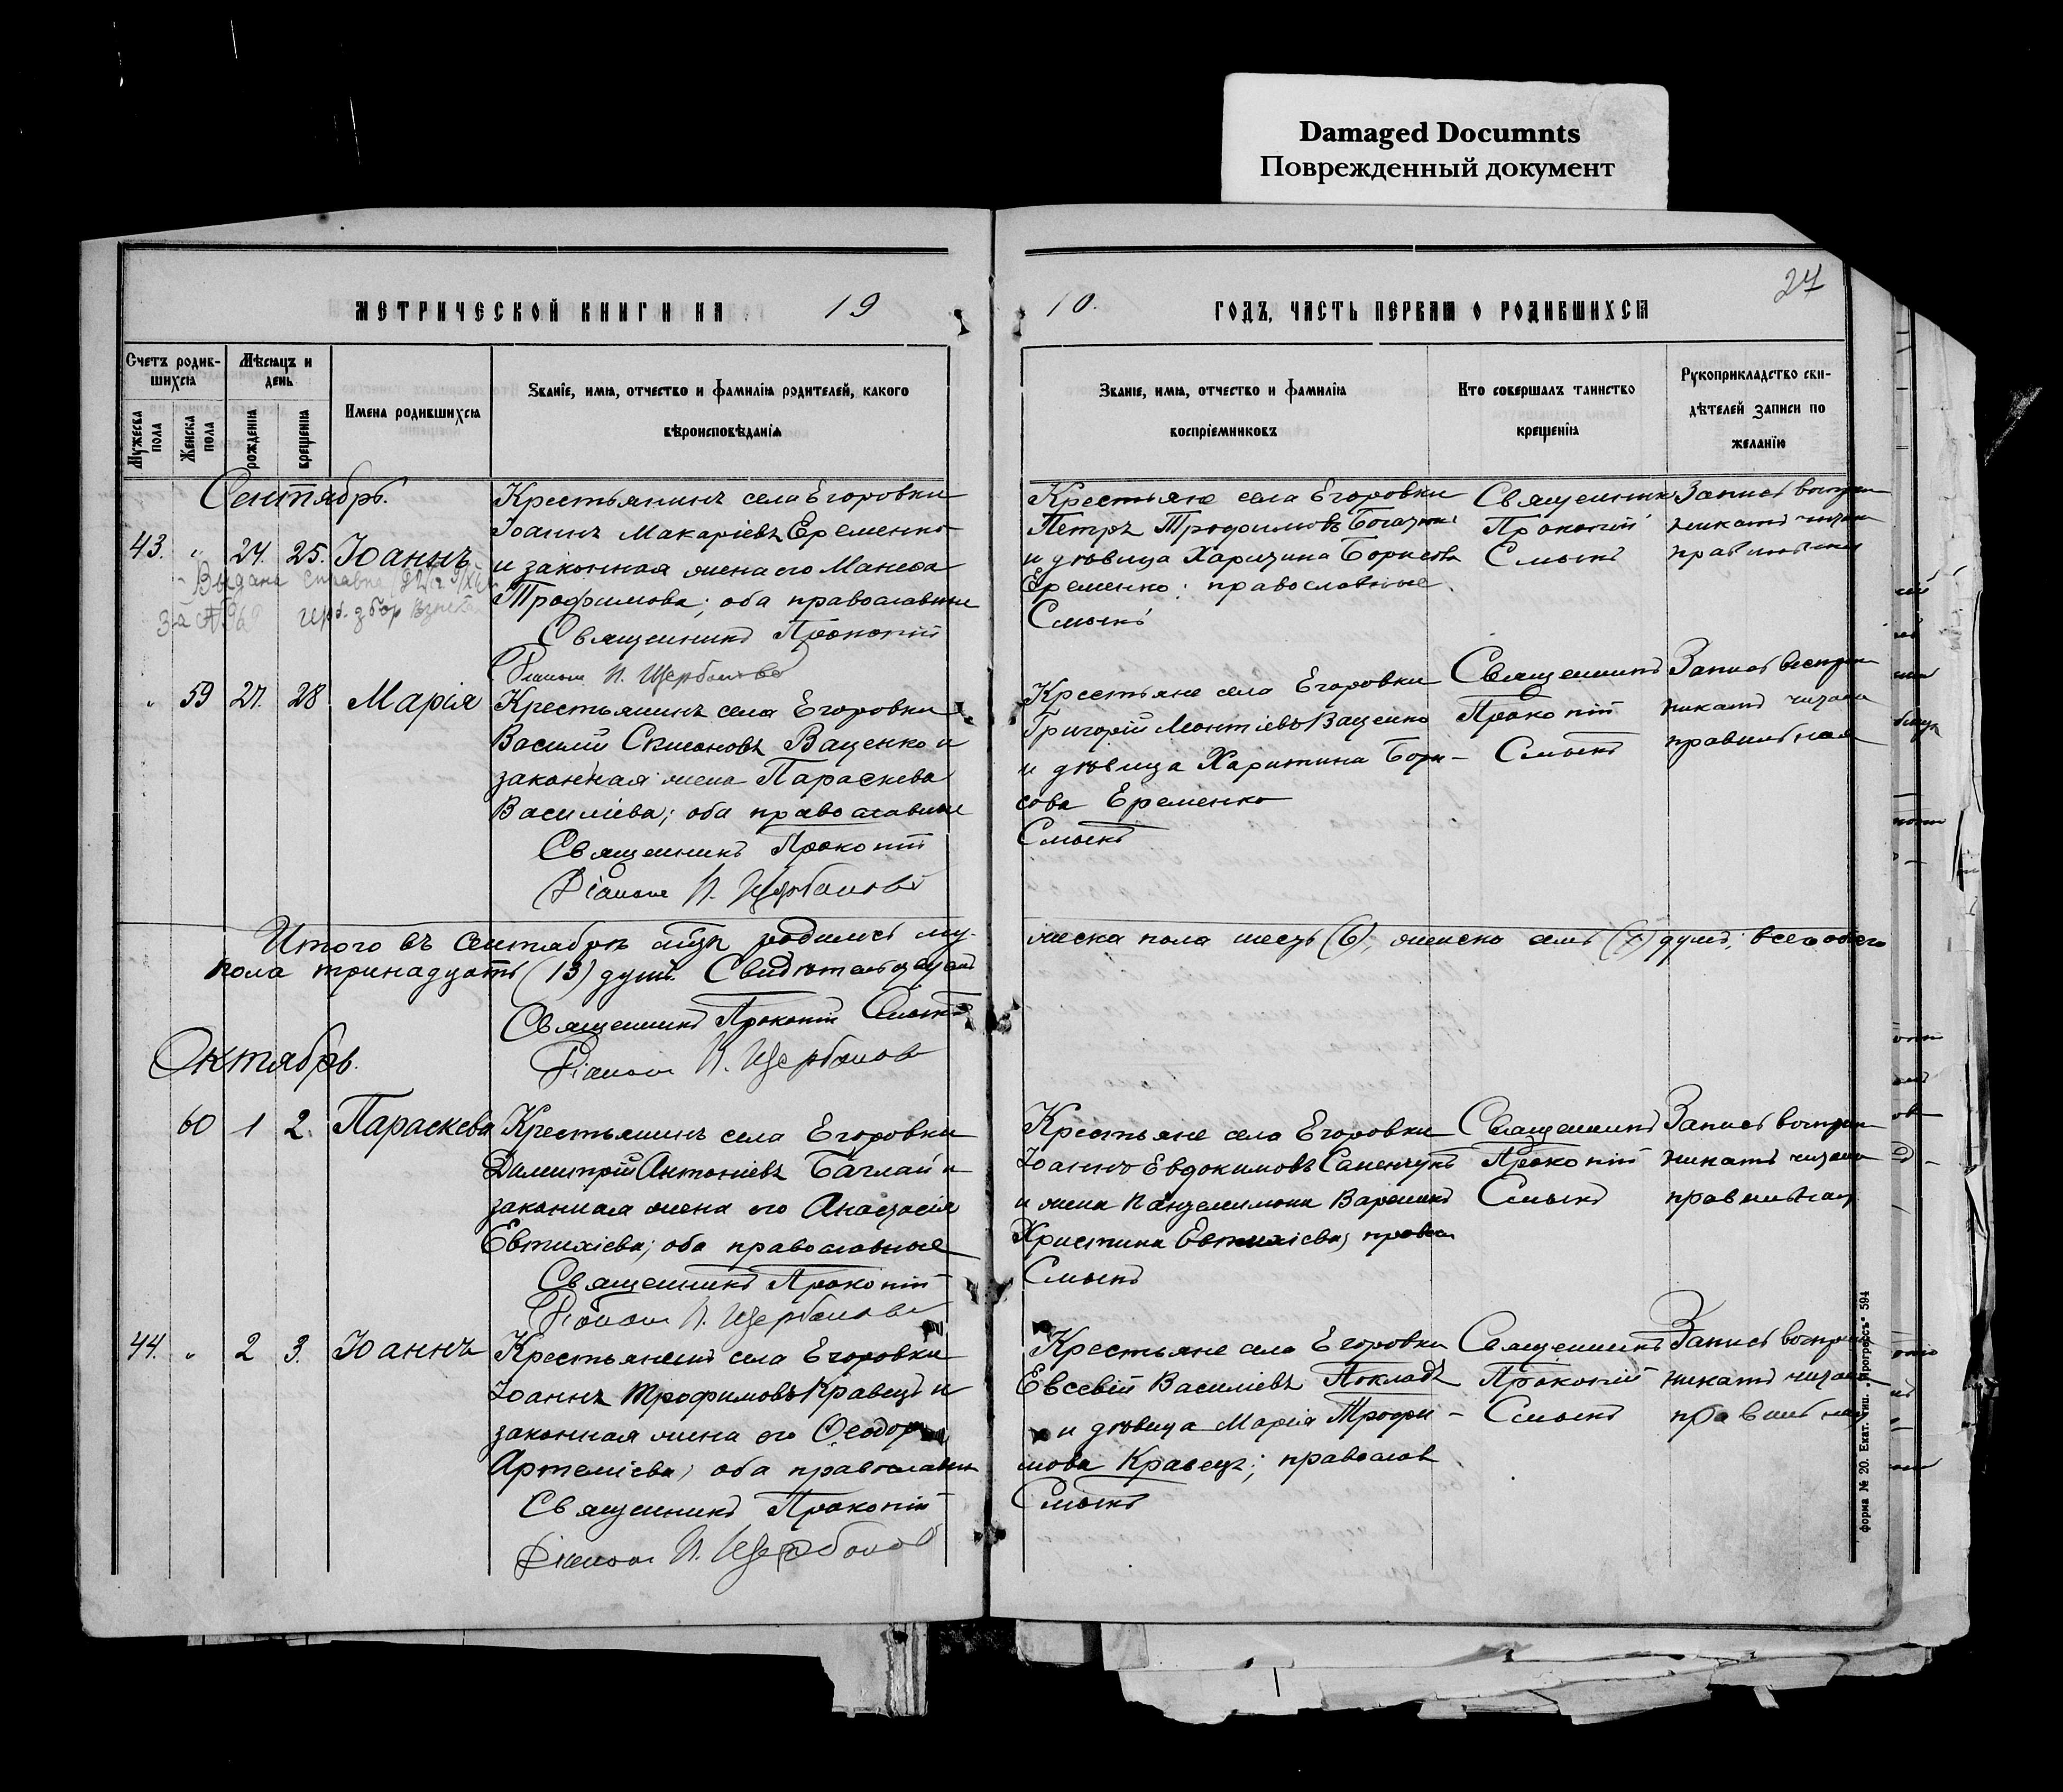 Damaged Documnts
Поврежденный документ
27
МЕТРИЧЕСКОЙ КНИГИ НА 19
10. ГОДЪ, ЧАСТЬ ПЕРВАЯ О РОДИВШИХСЯ
Счетъ родив-
шихся
Мужеска пола
Женска пола
Мѣсяцъ и
день
рожденія
крещенія
Имена родившихся
Званіе, имя, отчество и фамилія родителей, какого
вѣроисповѣданія
Званіе, имя, отчество и фамилія
воспріемниковъ
Кто совершалъ таинство
крещенія
Рукоприкладство сви-
дѣтелей записи по
желанію
Сентябрь.
43. " 24. 25. Іоаннъ
Выдана справка
за № герб. збор
Крестьянинъ села Егоровки
Іоаннъ Макаріевъ Еременко
и законная жена его
Трофимова; оба православные
Священникъ Прокопій
Діаконъ И. Щербаковъ
Крестьяне села Егоровки
Петръ Трофимовъ
и дѣвица Харитина Борисова
Еременко; православные.
Смыкъ
Священникъ
Прокопій
Смыкъ
Запись воспріем
никамъ читана
правильная
" 59 27. 28 Марія
Крестьянинъ села Егоровки
Василій Ваценко и
законная жена Параскева
Василіева; оба православные
Священникъ Прокопій
Діаконъ И. Щербаковъ
Крестьяне села Егоровки
Григорій Ваценко
и дѣвица Харитина Бори-
сова Еременко
Смыкъ
Священникъ
Прокопій
Смыкъ
Запись воспріем
никамъ читана
правильная
Итого въ Сентябрѣ родилось му-
жеска пола шесть (6), женска семь (7) душъ; всего обоего
пола тринадцать (13) душъ.
Священникъ Прокопій Смыкъ
Діаконъ И. Щербаковъ
Октябрь.
60 1 2. Параскева
Крестьянинъ села Егоровки
Димитрій Антоніевъ Баглай и
законная жена его Анастасія
Евтихіева; оба православные
Священникъ Прокопій
Діаконъ И. Щербаковъ
Крестьяне села Егоровки
Іоаннъ Евдокимовъ
и жена Пантелимона
Христина Евтихіева; правосл
Смыкъ
Священникъ
Прокопій
Смыкъ
Запись воспріем
никамъ читана
правильная
44. " 2 3. Іоаннъ
Крестьянинъ села Егоровки
Іоаннъ Трофимовъ Кравецъ и
законная жена его Ѳеодора
Артеміева; оба православные
Священникъ Прокопій
Діаконъ И. Щербаковъ
Крестьяне села Егоровки
Евсевій Василіевъ Покладъ
и дѣвица Марія Трофи-
мова Кравецъ; православ
Смыкъ
Священникъ
Прокопій
Смыкъ
Запись воспріем
никамъ читана
правильная
форма № 20. Екат. тип. „Прогрессъ" 594